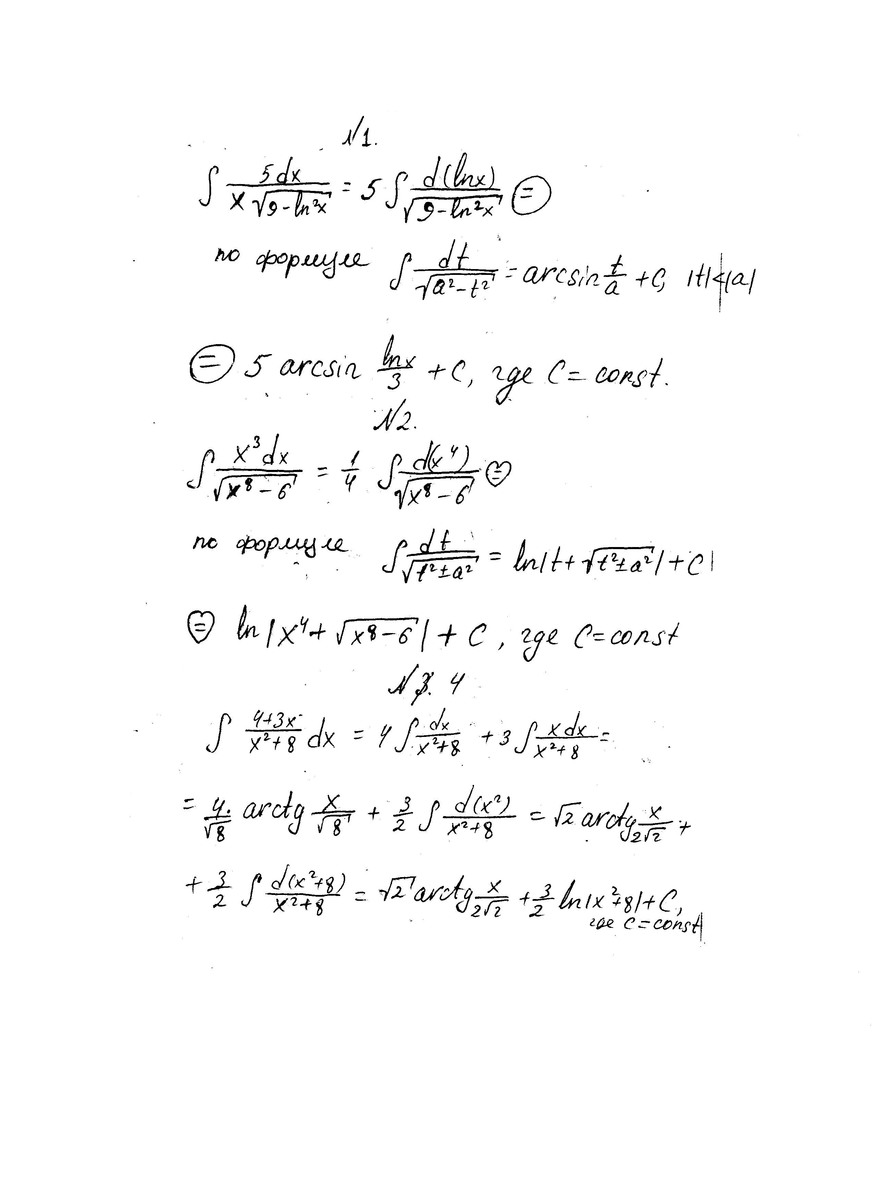 №1.
∫ 5dx / (x √(9 - ln²x)) = 5 ∫ d(lnx) / √(9 - ln²x) ⊜
по формуле ∫ dt / √(a² - t²) = arcsin t/a + C, |t|<|a|
⊜ 5 arcsin lnx/3 + C, где C = const.
№2.
∫ x³dx / √(x⁸ - 6) = 1/4 ∫ d(x⁴) / √(x⁸ - 6) =
по формуле ∫ dt / √(t² ± a²) = ln|t + √(t² ± a²)| + C
= ln|x⁴ + √(x⁸ - 6)| + C, где C = const
№ 4
∫ (4+3x) / (x² + 8) dx = 4 ∫ dx / (x² + 8) + 3 ∫ xdx / (x² + 8) =
= 4/√8 arctg x/√8 + 3/2 ∫ d(x²) / (x² + 8) = √2 arctg x/(2√2) +
+ 3/2 ∫ d(x² + 8) / (x² + 8) = √2 arctg x/(2√2) + 3/2 ln|x² + 8| + C,
где C = const